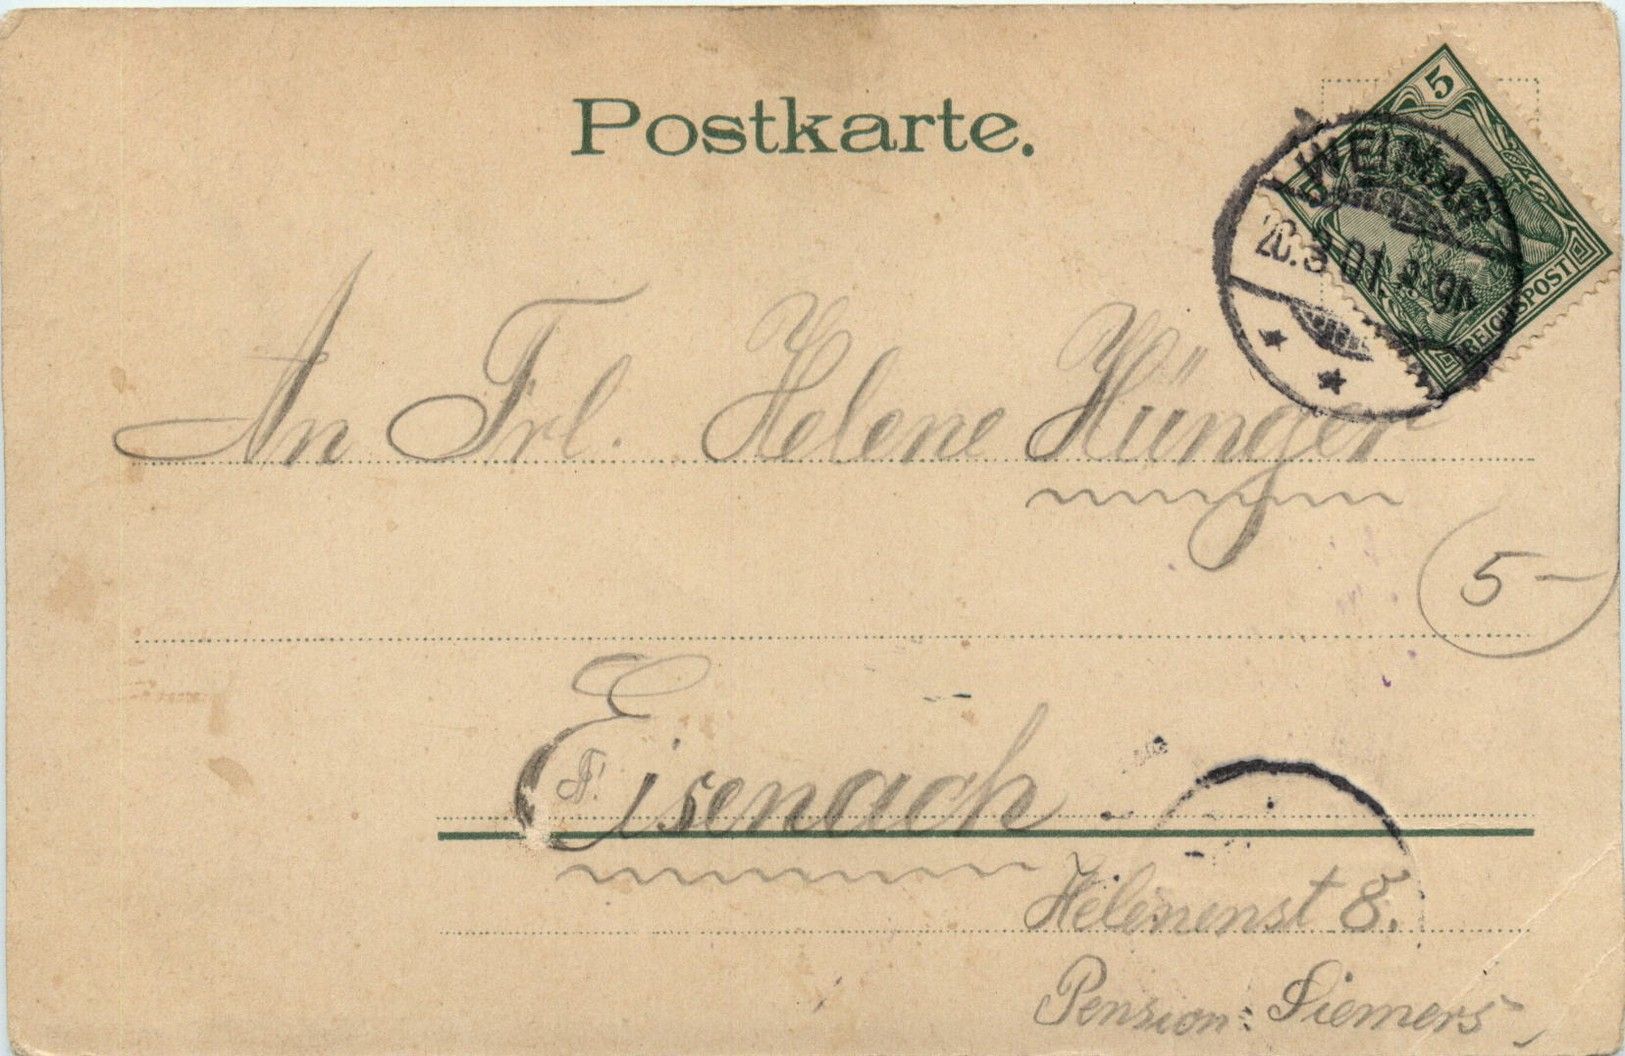 Postkarte.
5
REICHSPOST
WEIMAR
26.3.01.
An Frl. Helene Hünger
5-
Eisenach
Helenenst 8.
Pension: Siemers